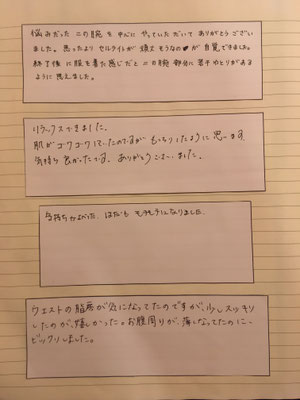 悩みだった二の腕を中心にやっていただいてありがとうござい
ました。思ったよりセルライトが頑丈そうなのが自覚できました。
終了後に服を着た感じだと二の腕部分に若干ゆとりがある
ように思えました。
リラックスできました。
肌がゴワゴワしていたのですがもっちりしたように思います。
気持ち良かったです。ありがとうございました。
気持ちよかった。はだも もちもちになりました。
ウエストの脂肪が気になってたのですが、少しスッキリ
したのが、嬉しかった。お腹周りが、薄くなってたのに
ビックリしました。